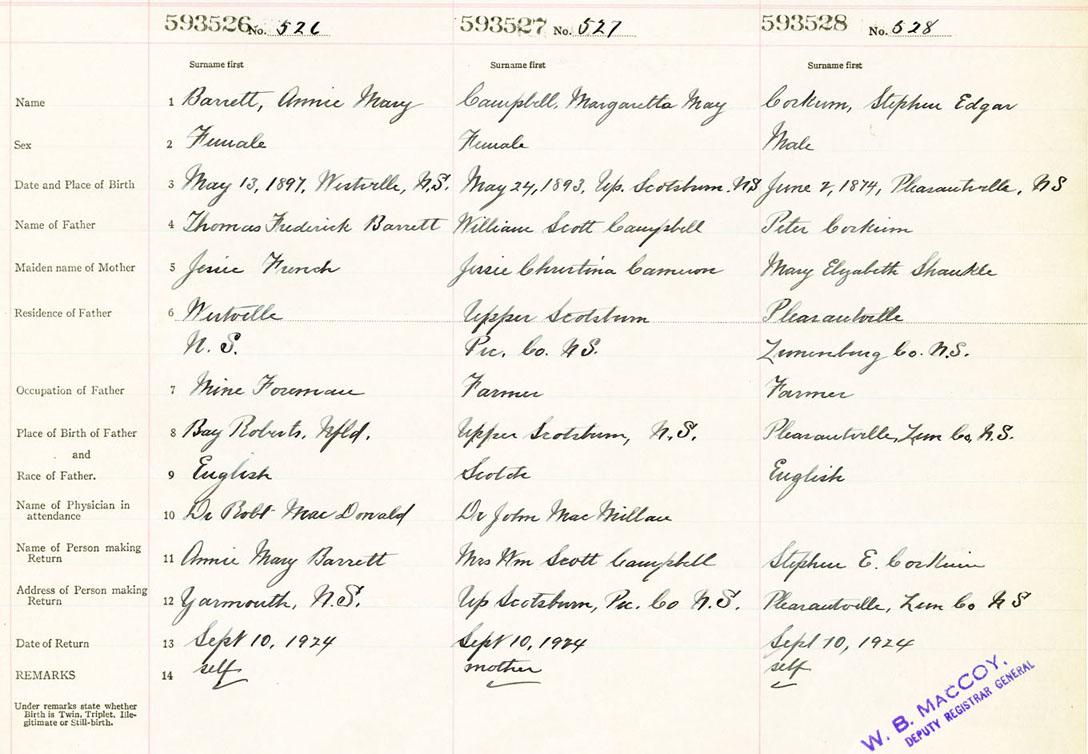 593526 No. 526 593527 No. 527 593528 No. 528
Surname first Surname first Surname first
Name 1 Barrett, Annie Mary Campbell, Margaretta May Corkum, Stephen Edgar
Sex 2 Female Female Male
Date and Place of Birth 3 May 13, 1897, Westville, N.S. May 24, 1893, Up. Scotsburn. NS June 2, 1874, Pleasantville, NS
Name of Father 4 Thomas Frederick Barrett William Scott Campbell Peter Corkum
Maiden name of Mother 5 Jessie French Jessie Christina Cameron Mary Elizabeth Shankle
Residence of Father 6 Westville Upper Scotsburn Pleasantville
N. S. Pic. Co. N.S. Lunenburg Co. N.S.
Occupation of Father 7 Mine Foreman Farmer Farmer
Place of Birth of Father 8 Bay Roberts, Nfld. Upper Scotsburn, N.S. Pleasantville, Lun Co, N.S.
and
Race of Father. 9 English Scotch English
Name of Physician in
attendance 10 Dr Robt MacDonald Dr John MacMillan
Name of Person making
Return 11 Annie Mary Barrett Mrs Wm Scott Campbell Stephen E. Corkum
Address of Person making
Return 12 Yarmouth, N.S. Up Scotsburn, Pic. Co N.S. Pleasantville, Lun Co N S
Date of Return 13 Sept 10, 1924 Sept 10, 1924 Sept 10, 1924
REMARKS 14 self mother self
Under remarks state whether
Birth is Twin, Triplet, Ille-
gitimate or Still-birth.
W. B. MACCOY,
DEPUTY REGISTRAR GENERAL